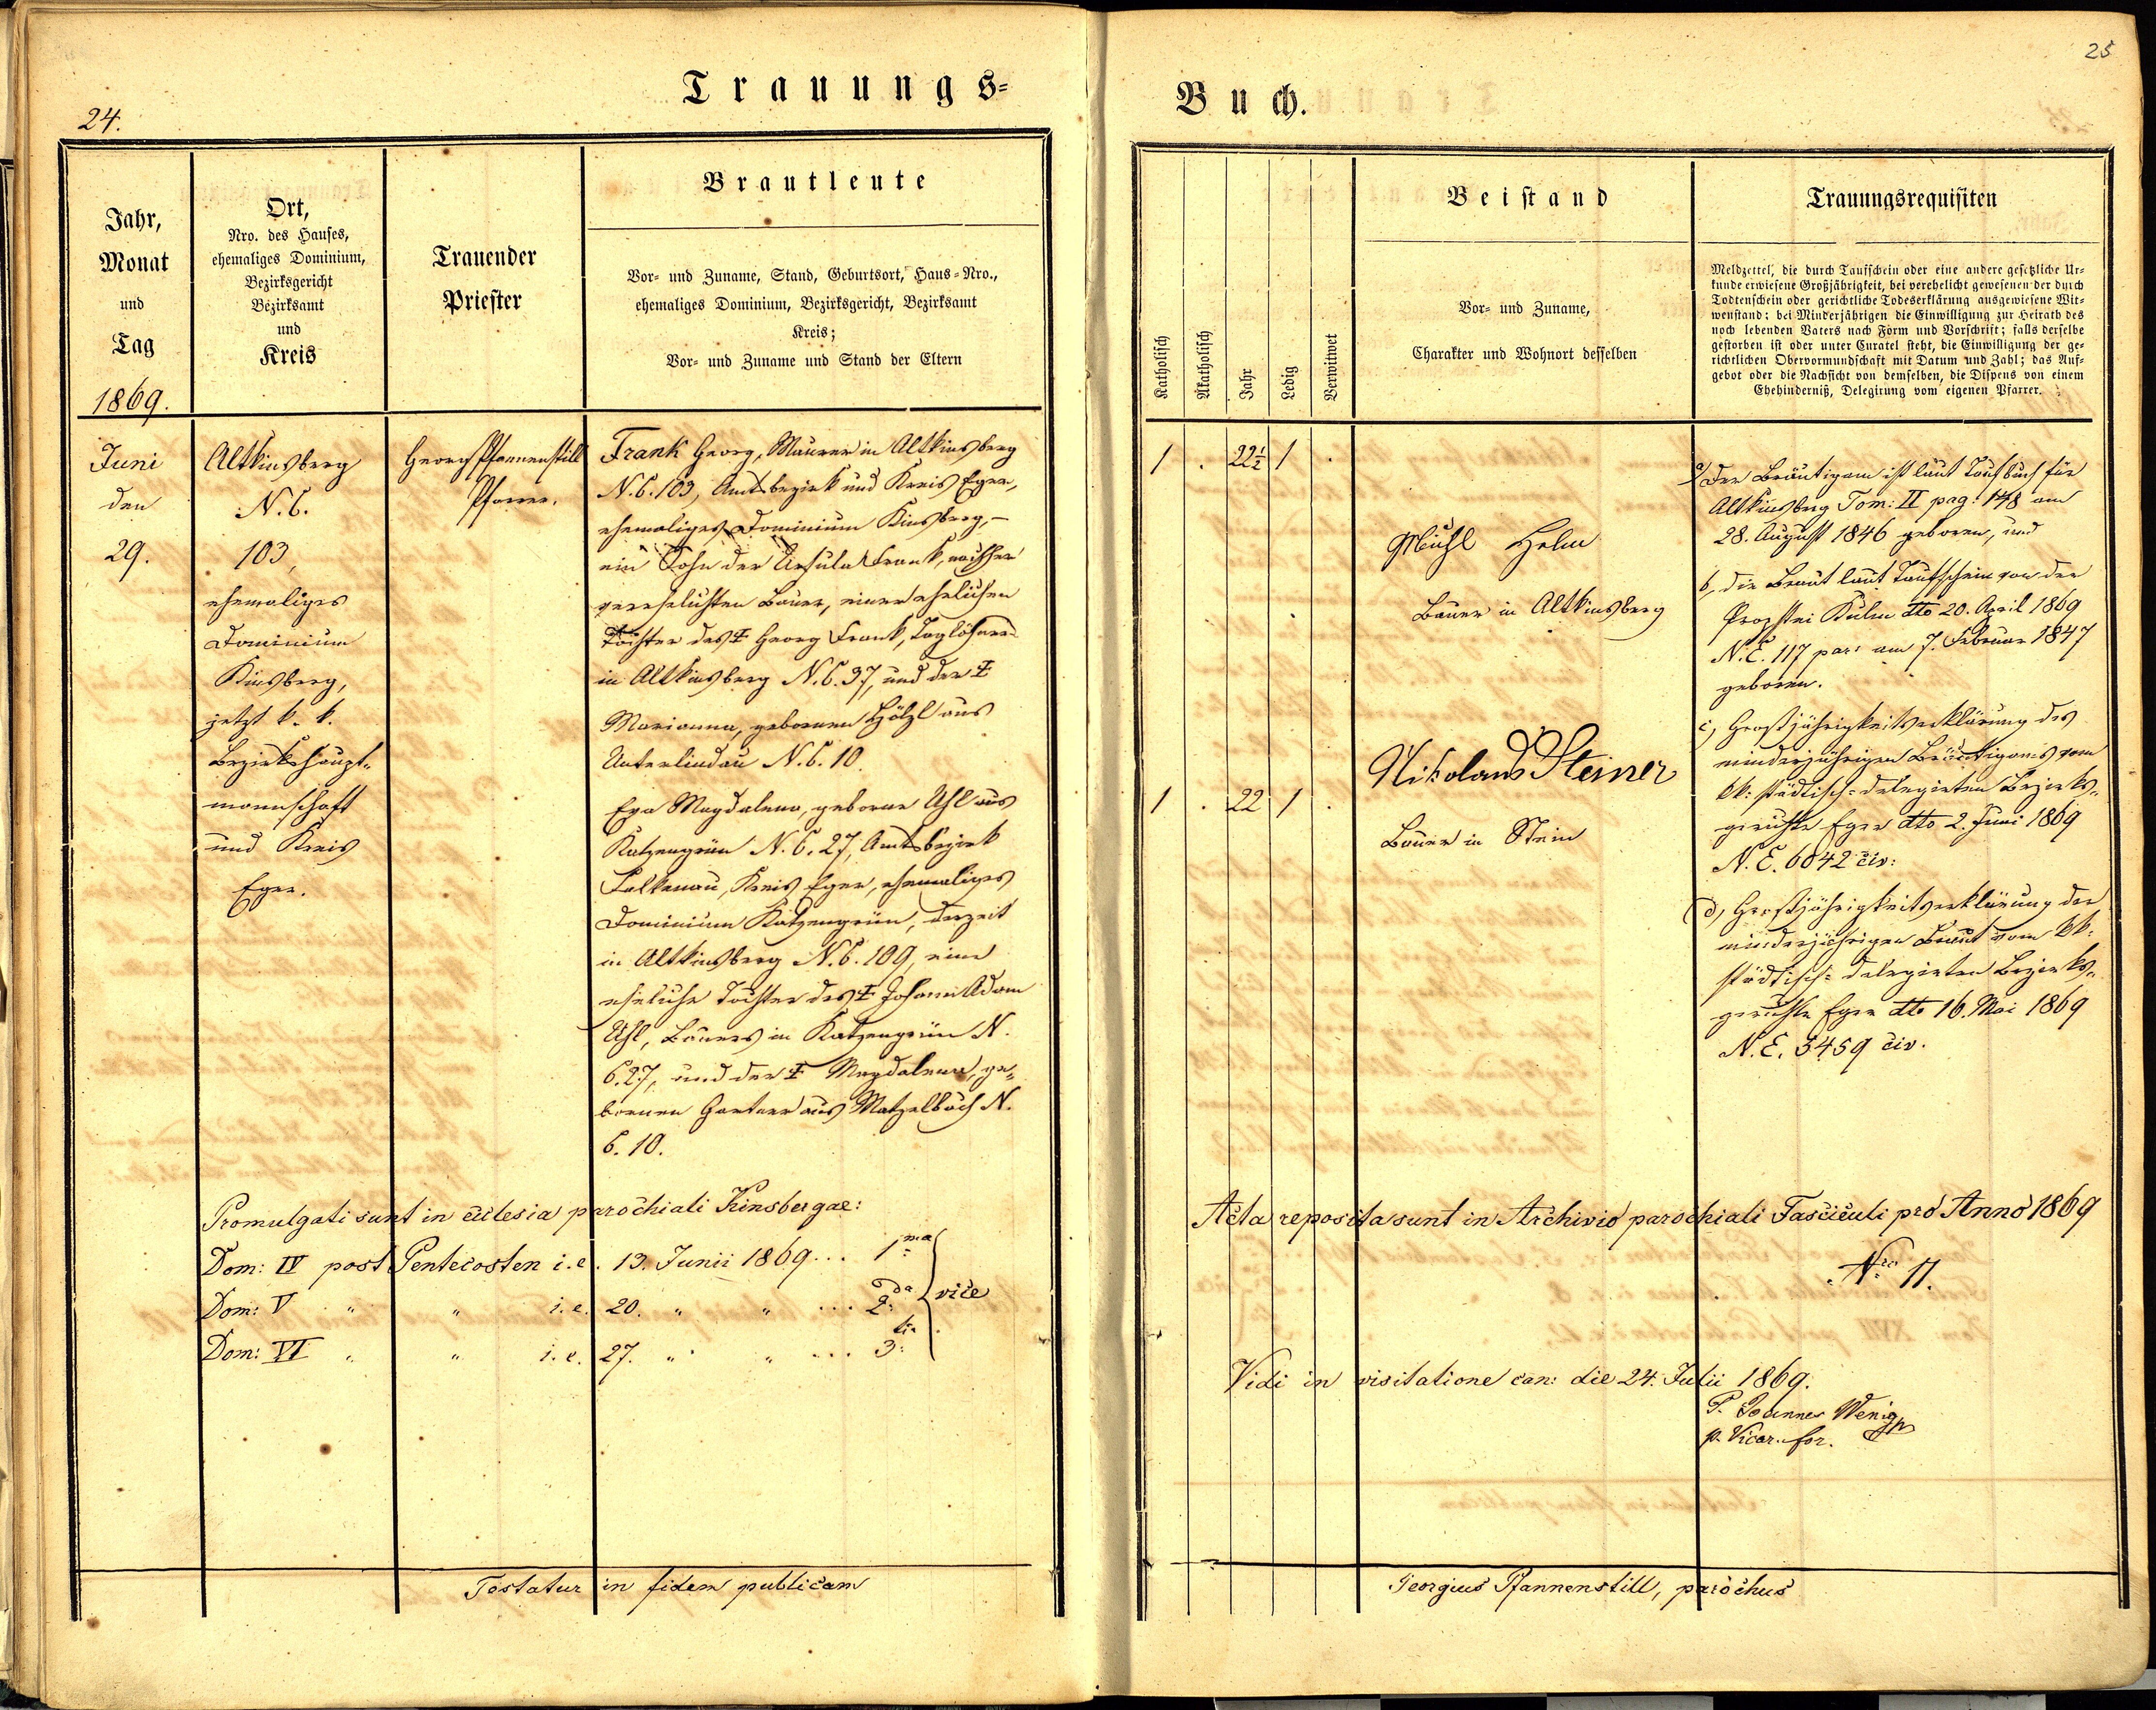 24.
Trauungs-
Jahr,
Monat
und
Tag
1869.
Ort,
Nro. des Hauses,
ehemaliges Dominium,
Bezirksgericht
Bezirksamt
und
Kreis
Trauender
Priester
Brautleute
Vor- und Zuname, Stand, Geburtsort, Haus-Nro.,
ehemaliges Dominium, Bezirksgericht, Bezirksamt
Kreis;
Vor- und Zuname und Stand der Eltern
Juni
den
29.
Altkinsberg
N.C.
103,
ehemaliges
Dominium
Kinsberg,
jetzt k. k.
Bezirkshaupt-
mannschaft
und Kreis
Eger.
Georg Pfannenstill
Pfarrer.
Frank Georg, Maurer in Altkinsberg
N.C. 103, Amtsbezirk und Kreis Eger,
ehemaliges Dominium Kinsberg, –
ein Sohn der Ursula Frank, nachher
verehelichten Bauer, einer ehelichen
Tochter des ‡ Georg Frank, Taglöhners
in Altkinsberg N.C. 37, und der ‡
Marianna, gebornen Hölzl aus
Unterlindau N.C. 10.
Eva Magdalena, geborne Uhl aus
Katzengrün N.C. 27, Amtsbezirk
Falkenau, Kreis Eger, ehemaliges
Dominium Katzengrün, derzeit
in Altkinsberg N.C. 109, eine
eheliche Tochter des ‡ Johann Adam
Uhl, Bauers in Katzengrün N.
C. 27, und der ‡ Magdalena, ge-
bornen Gartner aus Matzelbach N.
C. 10.
Promulgati sunt in ecclesia parochiali Kinsbergae:
Dom: IV post Pentecosten i.e. 13. Junii 1869 ... 1ma
Dom: V " " i.e. 20. " " ... 2da vice
Dom: VI " " i.e. 27. " " ... 3tia
Testatur in fidem publicam
25
Buch.
Katholisch
Akatholisch
Jahr
Ledig
Verwitwet
Beistand
Vor- und Zuname,
Charakter und Wohnort desselben
Trauungsrequisiten
Meldzettel, die durch Taufschein oder eine andere gesetzliche Ur-
kunde erwiesene Großjährigkeit, bei verehelicht gewesenen der durch
Todtenschein oder gerichtliche Todeserklärung ausgewiesene Wit-
wenstand; bei Minderjährigen die Einwilligung zur Heirath des
noch lebenden Vaters nach Form und Vorschrift; falls derselbe
gestorben ist oder unter Curatel steht, die Einwilligung der ge-
richtlichen Obervormundschaft mit Datum und Zahl; das Auf-
gebot oder die Nachsicht von demselben, die Dispens von einem
Ehehinderniß, Delegirung vom eigenen Pfarrer.
1 . 22½ 1 .
Michl Helm
Bauer in Altkinsberg
1 . 22 1 .
Nikolaus Steiner
Bauer in Stein
a) Der Bräutigam ist laut Taufbuch für
Altkinsberg Tom: II pag: 148 am
28. August 1846 geboren, und
b, die Braut laut Taufschein von der
Propstei Kulm dto 20. April 1869
N.E. 117 par: am 7. Februar 1847
geboren.
c, Großjährigkeitserklärung des
minderjährigen Bräutigams vom
kk: städtisch-delegirten Bezirks-
gerichte Eger dto 2. Juni 1869
N.E. 6042 civ:
d, Großjährigkeitserklärung der
minderjährigen Braut vom kk:
städtisch-delegirten Bezirks-
gerichte Eger dto 16. Mai 1869
N.E. 5459 civ.
Acta reposita sunt in Archivio parochiali Fasciculi pro Anno 1869
Nro 11.
Vidi in visitatione can: die 24. Julii 1869.
P. Joannes Wenig
p. Vicar. for.
Georgius Pfannenstill, parochus